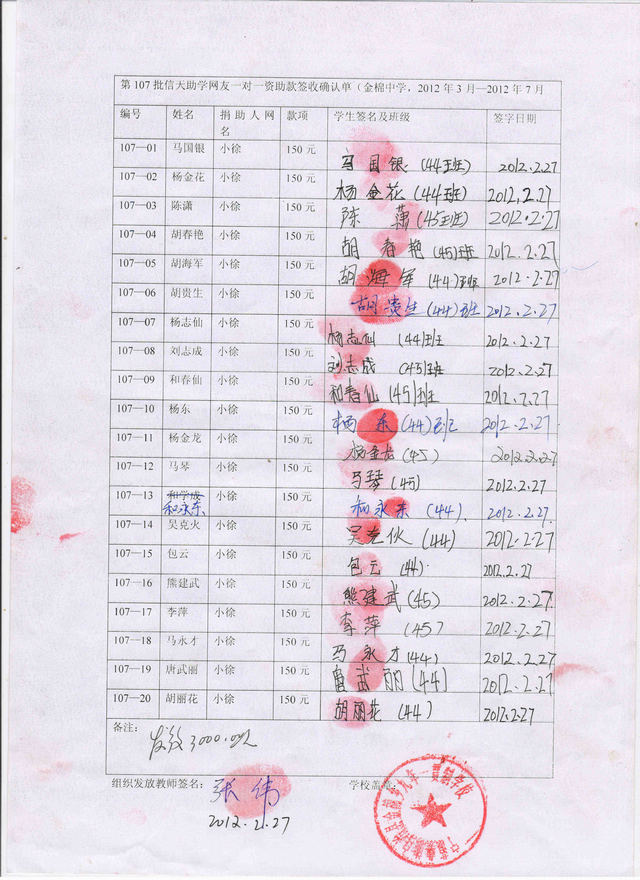 第 107 批信天助学网友一对一资助款签收确认单（金棉中学，2012 年 3 月—2012 年 7 月
编号 姓名 捐助人网名 款项 学生签名及班级 签字日期
107—01 马国银 小徐 150 元 马国银(44班) 2012.2.27
107—02 杨金花 小徐 150 元 杨金花(44班) 2012.2.27
107—03 陈潇 小徐 150 元 陈萧(45班) 2012.2.27
107—04 胡春艳 小徐 150 元 胡春艳(45)班 2012.2.27
107—05 胡海军 小徐 150 元 胡海军(44)班 2012.2.27
107—06 胡贵生 小徐 150 元 胡贵生(44)班 2012.2.27
107—07 杨志仙 小徐 150 元 杨志仙(44)班 2012.2.27
107—08 刘志成 小徐 150 元 刘志成(45)班 2012.2.27
107—09 和春仙 小徐 150 元 和春仙(45)班 2012.2.27
107—10 杨东 小徐 150 元 杨东(44)班 2012.2.27
107—11 杨金龙 小徐 150 元 杨金龙(45) 2012.2.27
107—12 马琴 小徐 150 元 马琴(45) 2012.2.27
107—13 和学成 和永东 小徐 150 元 和永东(44). 2012.2.27
107—14 吴克火 小徐 150 元 吴克伙(44) 2012.2.27
107—15 包云 小徐 150 元 包云(44) 2012.2.27
107—16 熊建武 小徐 150 元 熊建武(45) 2012.2.27
107—17 李萍 小徐 150 元 李萍(45) 2012.2.27
107—18 马永才 小徐 150 元 马永才(44) 2012.2.27
107—19 唐武丽 小徐 150 元 唐武丽(44) 2012.2.27
107—20 胡丽花 小徐 150 元 胡丽花(44) 2012.2.27
备注：
发放3000.00元
组织发放教师签名： 张伟 学校盖章：
2012.2.27
金棉乡九年一贯制学校